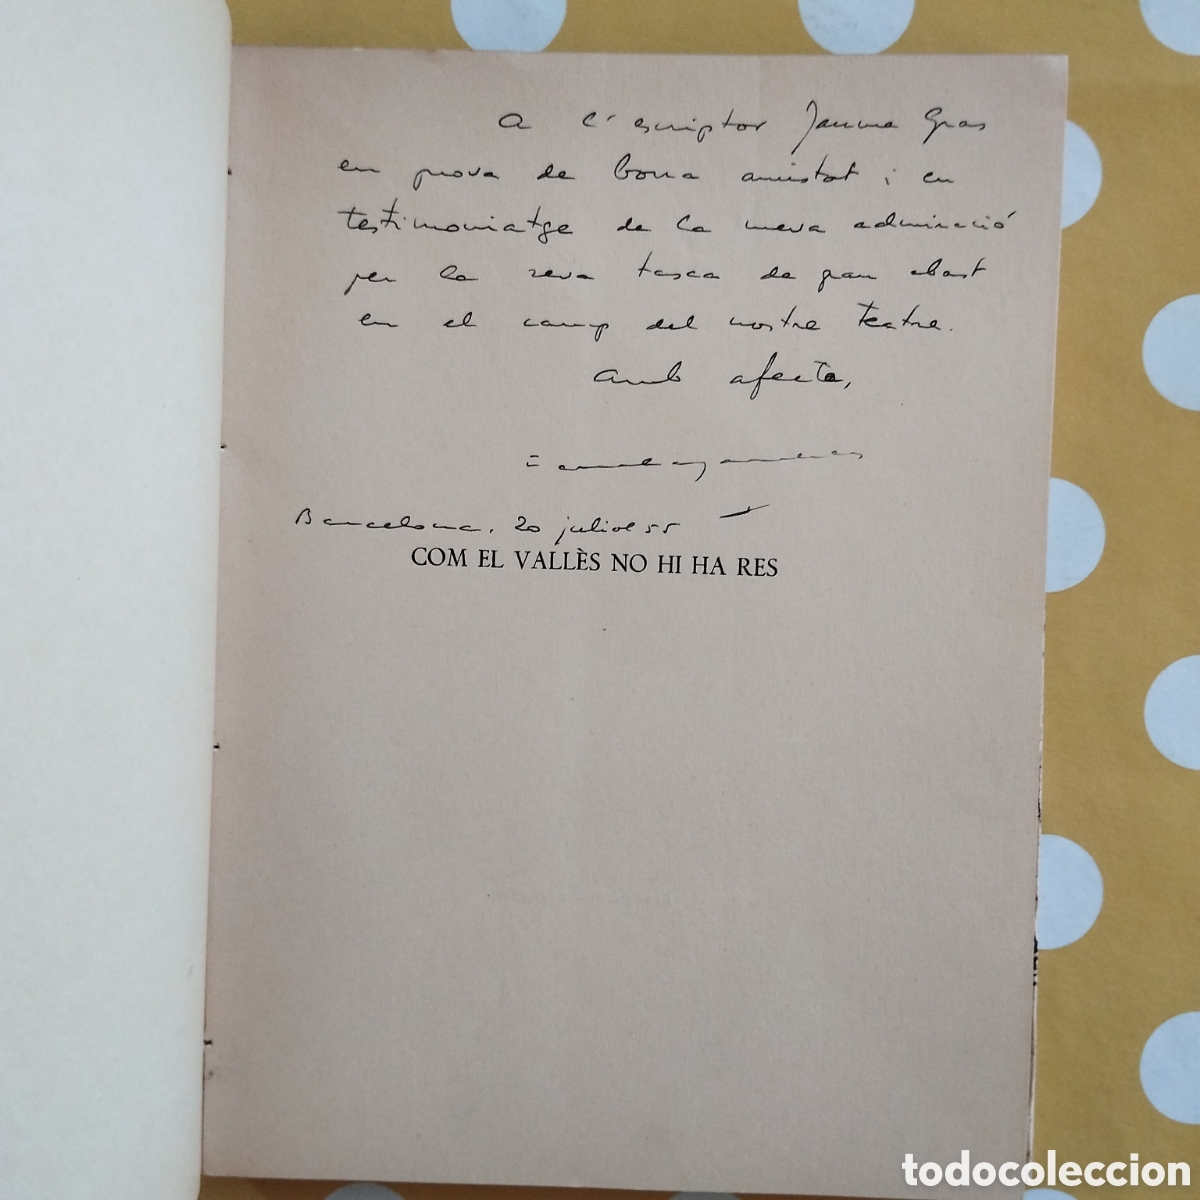 A l'escriptor Jaume Gras
en prova de bona amistat i en
testimoniatge de la meva admiració
per la seva tasca de gran abast
en el camp del nostre teatre.
Amb afecte,
Barcelona, 20 juliol 55
COM EL VALLÈS NO HI HA RES
todocoleccion